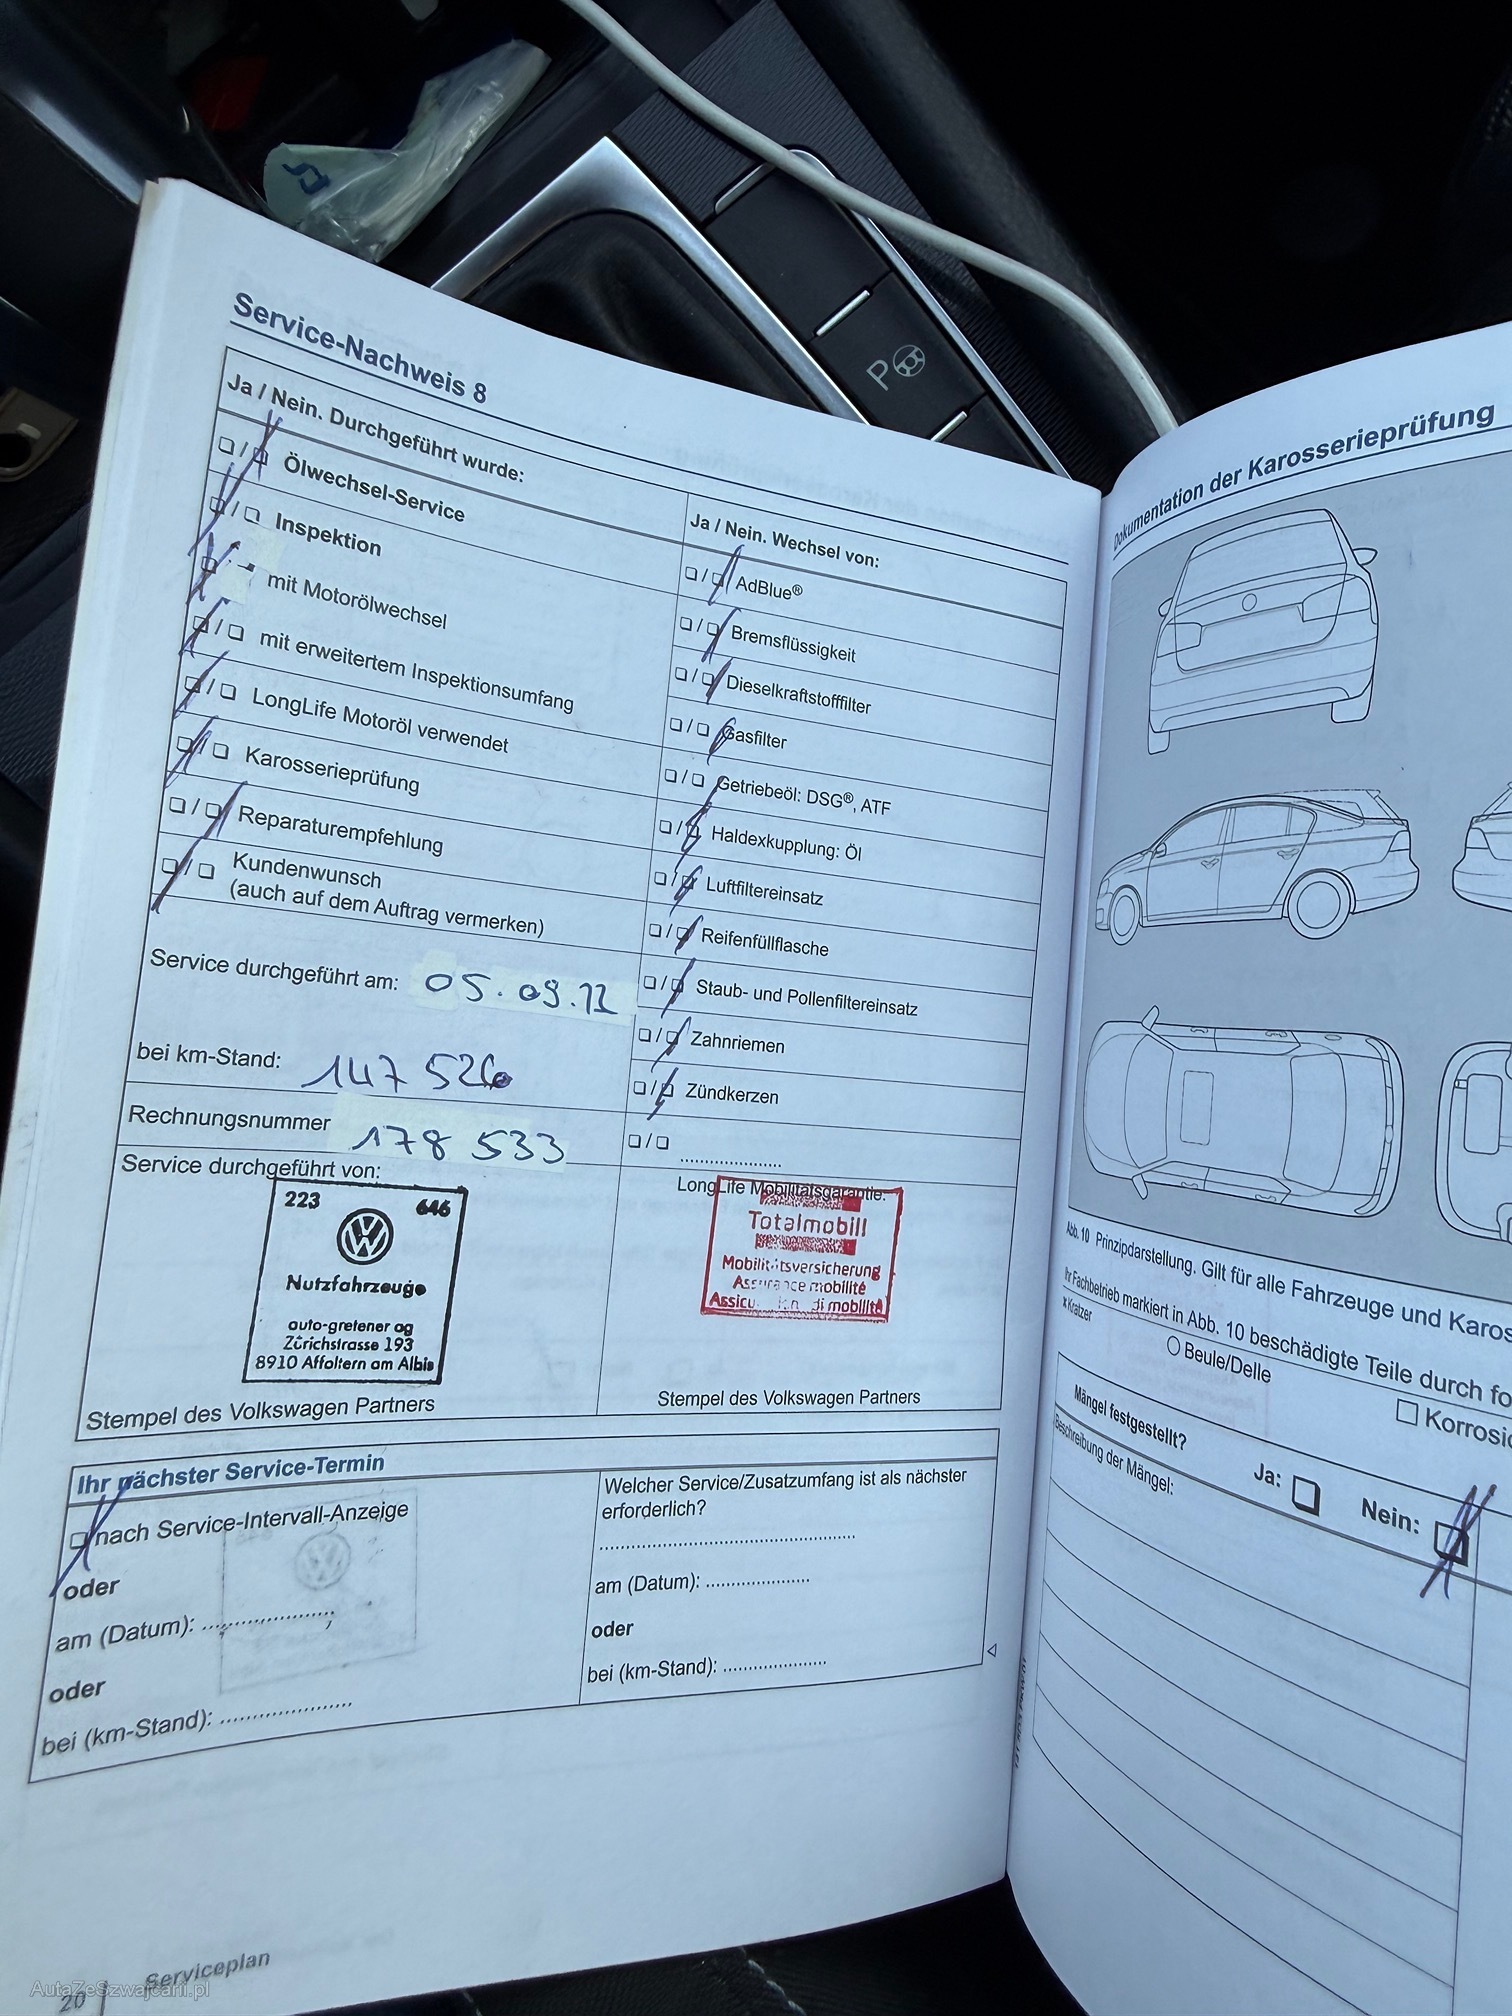 Service-Nachweis 8
Ja / Nein. Durchgeführt wurde:
Ölwechsel-Service
Inspektion
mit Motorölwechsel
mit erweitertem Inspektionsumfang
LongLife Motoröl verwendet
Karosserieprüfung
Reparaturempfehlung
Kundenwunsch
(auch auf dem Auftrag vermerken)
Service durchgeführt am: 05.09.22
bei km-Stand: 147 526
Rechnungsnummer 178 533
Service durchgeführt von:
223 646
Nutzfahrzeuge
auto-gretener ag
Zürichstrasse 193
8910 Affoltern am Albis
Stempel des Volkswagen Partners
Ja / Nein. Wechsel von:
AdBlue®
Bremsflüssigkeit
Dieselkraftstofffilter
Gasfilter
Getriebeöl: DSG®, ATF
Haldexkupplung: Öl
Luftfiltereinsatz
Reifenfüllflasche
Staub- und Pollenfiltereinsatz
Zahnriemen
Zündkerzen
LongLife Mobilitätsgarantie:
Totalmobil!
Mobilitätsversicherung
Assurance mobilité
di mobilità
Stempel des Volkswagen Partners
Ihr nächster Service-Termin
nach Service-Intervall-Anzeige
oder
am (Datum):
oder
bei (km-Stand):
Welcher Service/Zusatzumfang ist als nächster
erforderlich?
am (Datum):
oder
bei (km-Stand):
20 Serviceplan
Dokumentation der Karosserieprüfung
Abb. 10 Prinzipdarstellung. Gilt für alle Fahrzeuge und Karos
Ihr Fachbetrieb markiert in Abb. 10 beschädigte Teile durch fo
x Kratzer
Beule/Delle
Korrosio
Mängel festgestellt?
Ja: Nein:
Beschreibung der Mängel:
P
AutaZeSzwajcarii.pl